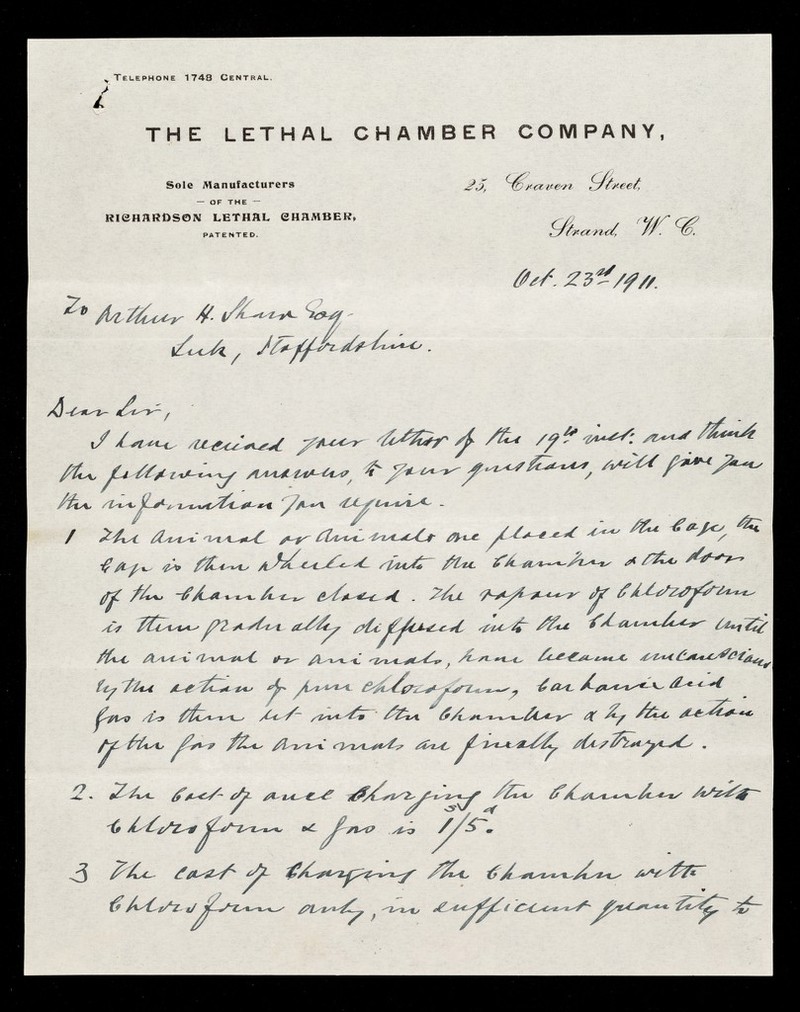 TELEPHONE 1748 CENTRAL.
THE LETHAL CHAMBER COMPANY,
Sole Manufacturers
— OF THE —
RICHARDSON LETHAL CHAMBER,
PATENTED.
25, Craven Street,
Strand, W. C.
Oct. 23rd 1911.
To Arthur H. Shaw Esq.
Leek, Staffordshire.
Dear Sir,
I have received your letter of the 19th inst: and think
the following answers, to your questions, will give you
the information you require.
1 The animal or animals are placed in the Cage, the
Cage is then wheeled into the Chamber & the door
of the Chamber closed. The vapour of Chloroform
is then gradually diffused into the Chamber until
the animal or animals, have become unconscious
by the action of pure chloroform, Carbonic Acid
Gas is then let into the Chamber & by the action
of the Gas the animals are finally destroyed.
2. The Cost of once Charging the Chamber with
Chloroform & Gas is 1s/5d.
3 The cost of Charging the Chamber with
Chloroform only, in sufficient quantity to